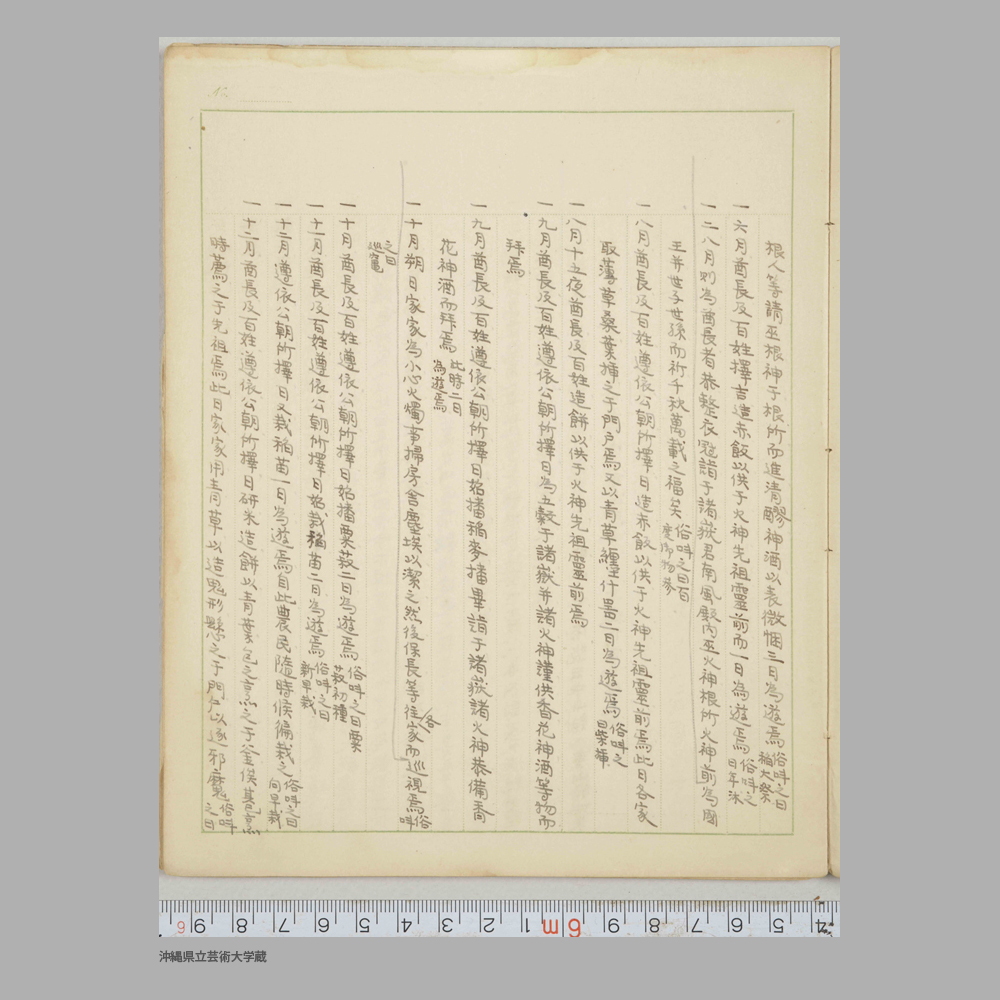 根人等請巫根神于根所而進清醪神酒以表微悃三日為遊焉俗叫之曰稲大祭
一六月酋長及百姓擇吉造赤飯以供于火神先祖靈前而一日為遊焉俗叫之曰年沐
一二八月則為酋長者恭整衣冠詣于諸嶽君南風殿內巫火神根所火神前為國
王并世子世孫而祈千秋萬載之福矣俗叫之曰百
一八月酋長及百姓遵依公朝所擇日造赤飯以供于火神先祖靈前焉此日各家
取薄草桑葉揷之于門戶焉又以青草纏什噐二日為遊焉俗叫之曰柴揷
一八月十五夜酋長及百姓造餅以供于火神先祖靈前焉
一九月酋長及百姓遵依公朝所擇日為五穀于諸嶽并諸火神謹供香花神酒等物而
拜焉
一九月酋長及百姓遵依公朝所擇日始播稲麥播畢詣于諸嶽諸火神恭備香
花神酒而拜焉此時二日為遊焉
一十月朔日家家為小心火燭事掃房舍塵埃以潔之然後保長等往各家而巡視焉俗叫
之曰巡竃
一十月酋長及百姓遵依公朝所擇日始播粟菽二日為遊焉俗叫之曰粟菽初種
一十一月酋長及百姓遵依公朝所擇日始栽稲苗二日為遊焉俗叫之曰新早栽
一十二月遵依公朝所擇日又栽稲苗一日為遊焉自此農民隨時候徧栽之俗叫之曰向早栽
一十二月酋長及百姓遵依公朝所擇日研米造餅以青葉包之烹之于釜俟其已烹
時薦之于先祖焉此日家家用青草以造鬼形懸之于門戶以逐邪魔俗叫之曰
沖縄県立芸術大学蔵